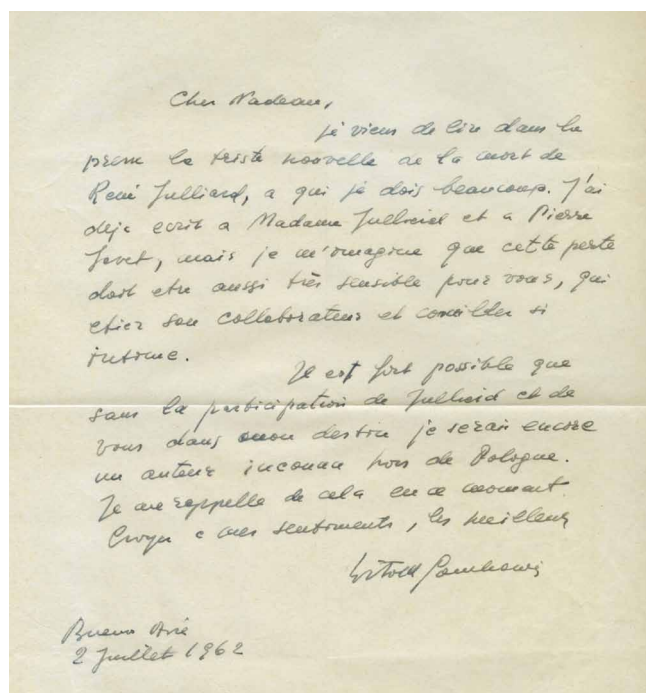 Cher Nadeau,
je viens de lire dans la
presse la triste nouvelle de la mort de
René Julliard, a qui je dois beaucoup. J'ai
déja ecrit a Madame Julliard et a Pierre
Javet, mais je m'imagine que cette perte
doit etre aussi très sensible pour vous, qui
etiez son collaborateur et conseiller si
intime.
Il est fort possible que
sans la participation de Julliard et de
vous dans mon destin je serais encore
un auteur inconnu hors de Pologne.
Je me rappelle de cela en ce moment.
Croyez a mes sentiments, les meilleurs
Witold Gombrowicz
Buenos Aires
2 Juillet 1962